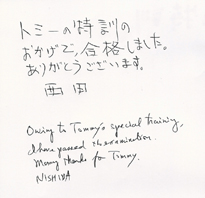 トミーの特訓の
おかげで、合格しました。
ありがとうございます。
西田
Owing to Tommy's special training,
I have passed the examination.
Many thanks for Tommy.
NISHIDA